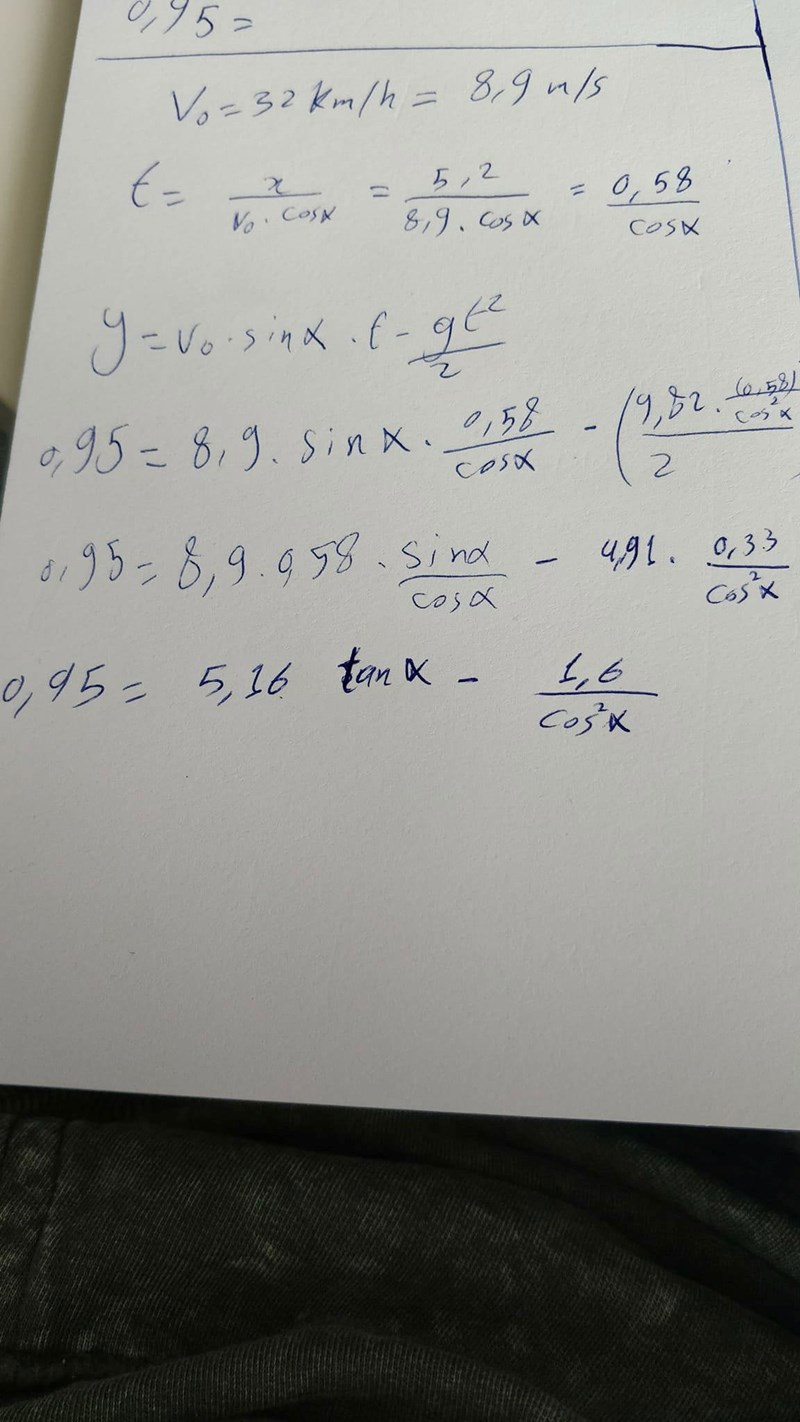 0,95 =
V₀ = 32 km/h = 8,9 m/s
t = x / (v₀ · cosα) = 5,2 / (8,9 · cosα) = 0,58 / cosα
y = v₀ · sinα · t - gt² / 2
0,95 = 8,9 · sinα · 0,58 / cosα - (9,82 · (0,58) / cos²α / 2
0,95 = 8,9 · 0,58 · sinα / cosα - 4,91 · 0,33 / cos²α
0,95 = 5,16 tanα - 1,6 / cos²α